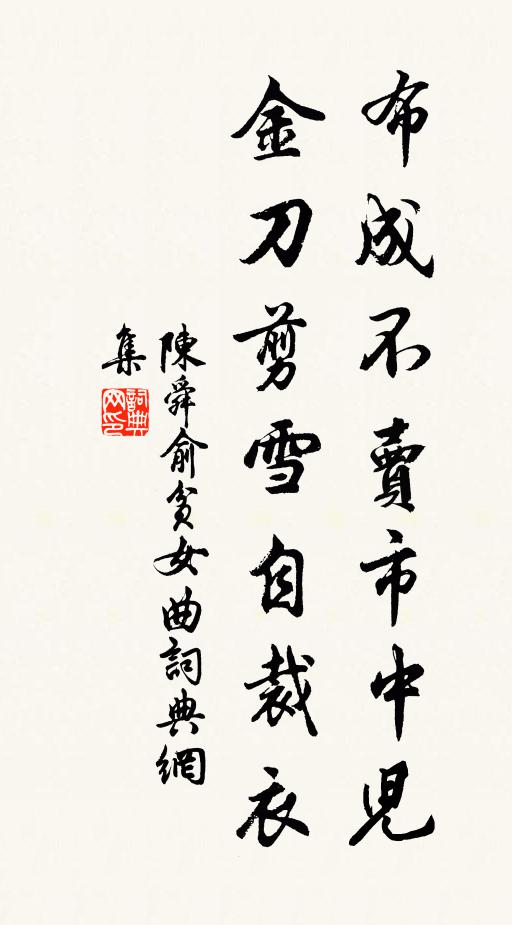 布成不賣市中兒
金刀剪雪自裁衣
陳舜俞貧女曲詞典網
集
詞典網印